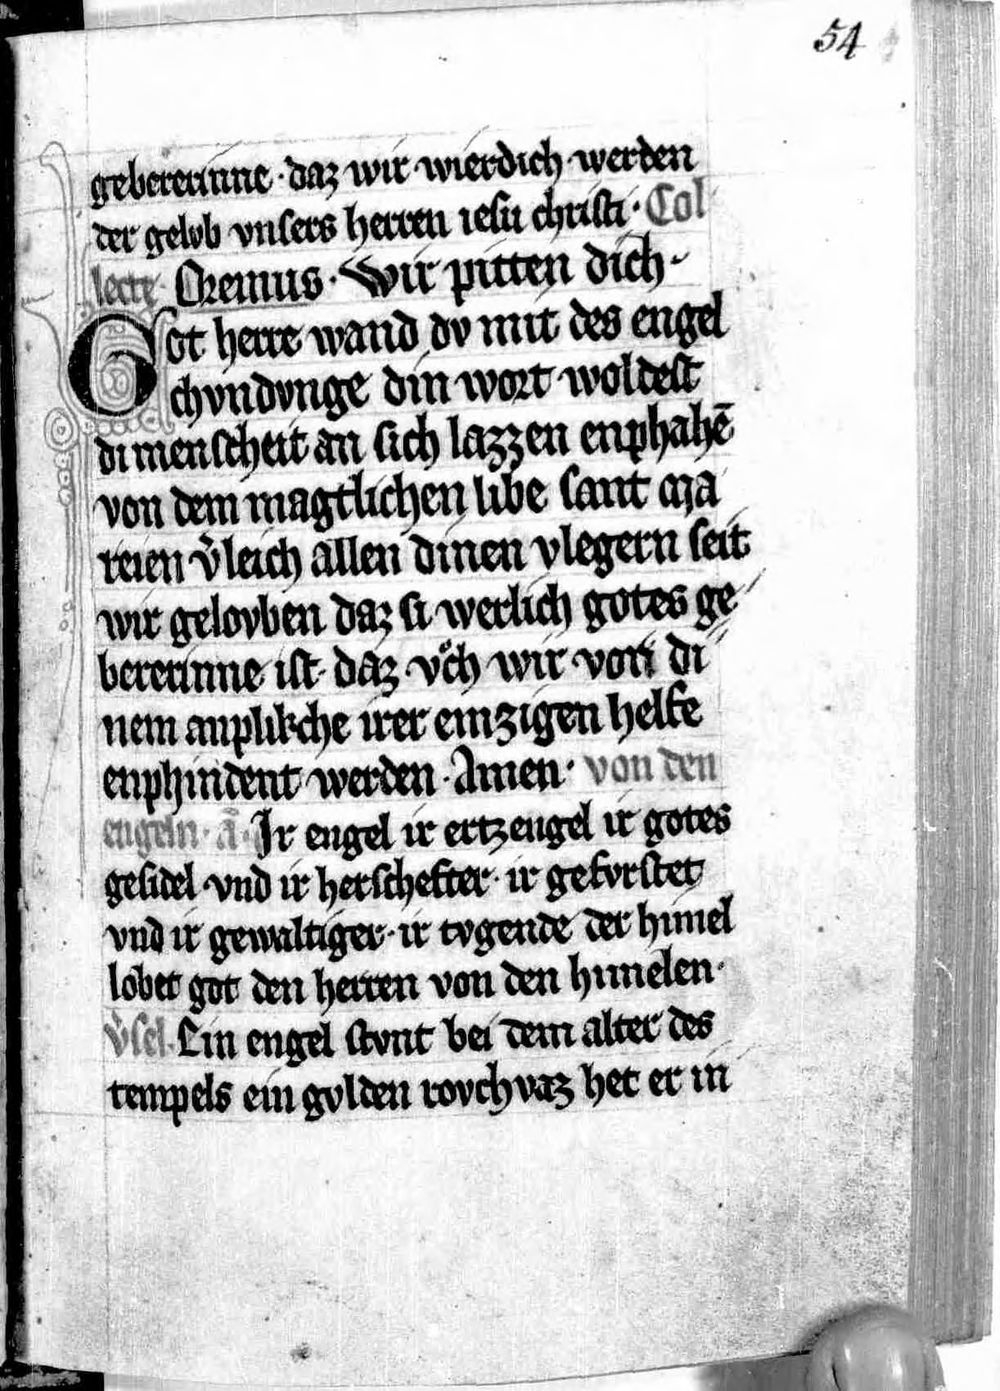 54
gebererinne · daz wir wierdich werden
der gelvb vnsers herren iesu christi · Col
lecte · Oremus · Wir pitten dich ·
Got herre wand dv mit des engel
chvndvnge din wort woldest
di menscheit an sich lazzen enphahē
von dem magtlichen libe sant Ma
reien v̉leich allen dinen vlegern seit
wir gelovben daz si werlich gotes ge
bererinne ist · daz vͦch wir von di
nem anplikche irer einzigen helfe
enphindent werden · Amen · von den
engeln · ā · Ir engel ir ertzengel ir gotes
gesidel vnd ir herschefter · ir gefvrstet
vnd ir gewaltiger · ir tvgende der himel
lobet got den herren von den himelen ·
v̉sel · Ein engel stvnt bei dem alter des
tempels ein gvlden rovchvaz het er in